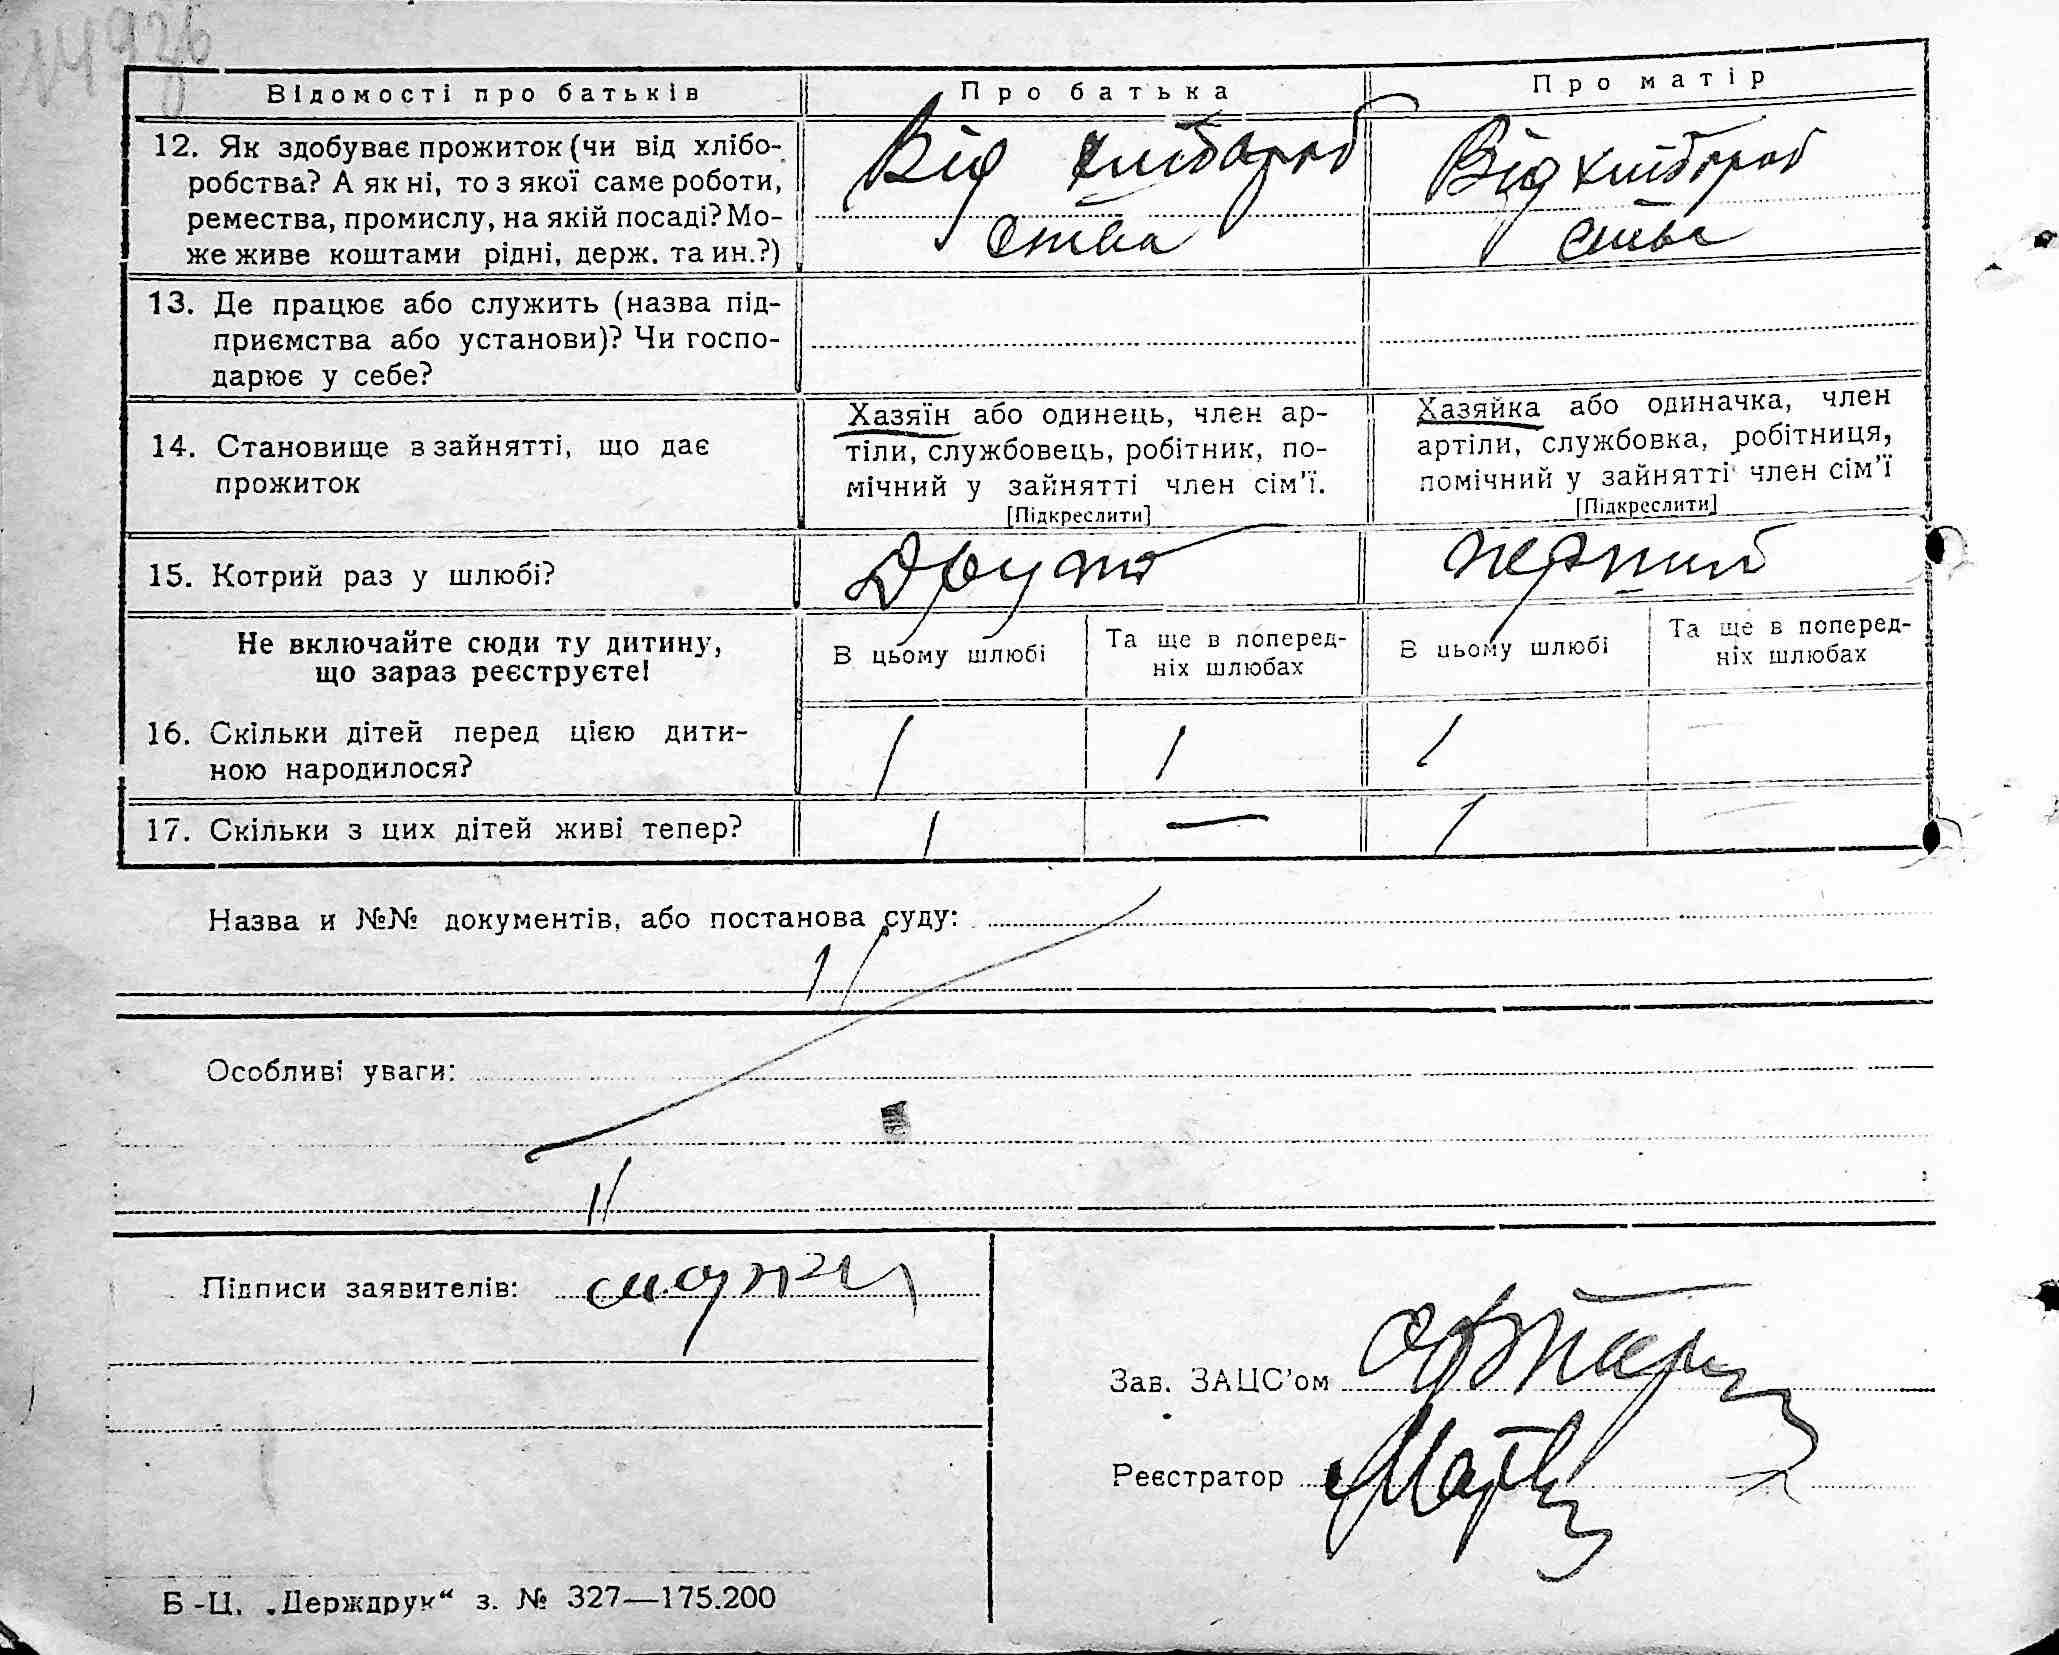 Відомості про батьків
Про батька
Про матір
12. Як здобуває прожиток (чи від хлібо-
робства? А як ні, то з якої саме роботи,
ремества, промислу, на якій посаді? Мо-
же живе коштами рідні, держ. та ин.?)
Від хлібороб
ства
Від хлібороб
ства
13. Де працює або служить (назва під-
приємства або установи)? Чи госпо-
дарює у себе?
14. Становище в зайнятті, що дає
прожиток
Хазяїн або одинець, член ар-
тіли, службовець, робітник, по-
мічний у зайнятті член сім'ї.
[Підкреслити]
Хазяйка або одиначка, член
артіли, службовка, робітниця,
помічний у зайнятті член сім'ї
[Підкреслити]
15. Котрий раз у шлюбі?
Другий
перший
Не включайте сюди ту дитину,
що зараз реєструєте!
В цьому шлюбі
Та ще в поперед-
ніх шлюбах
В цьому шлюбі
Та ще в поперед-
ніх шлюбах
16. Скільки дітей перед цією дити-
ною народилося?
1
1
1
—
17. Скільки з цих дітей живі тепер?
1
—
1
—
Назва и №№ документів, або постанова суду:
Особливі уваги:
Підписи заявителів:
Зав. ЗАЦС'ом
Реєстратор
Б-Ц. „Держдрук“ з. № 327—175.200